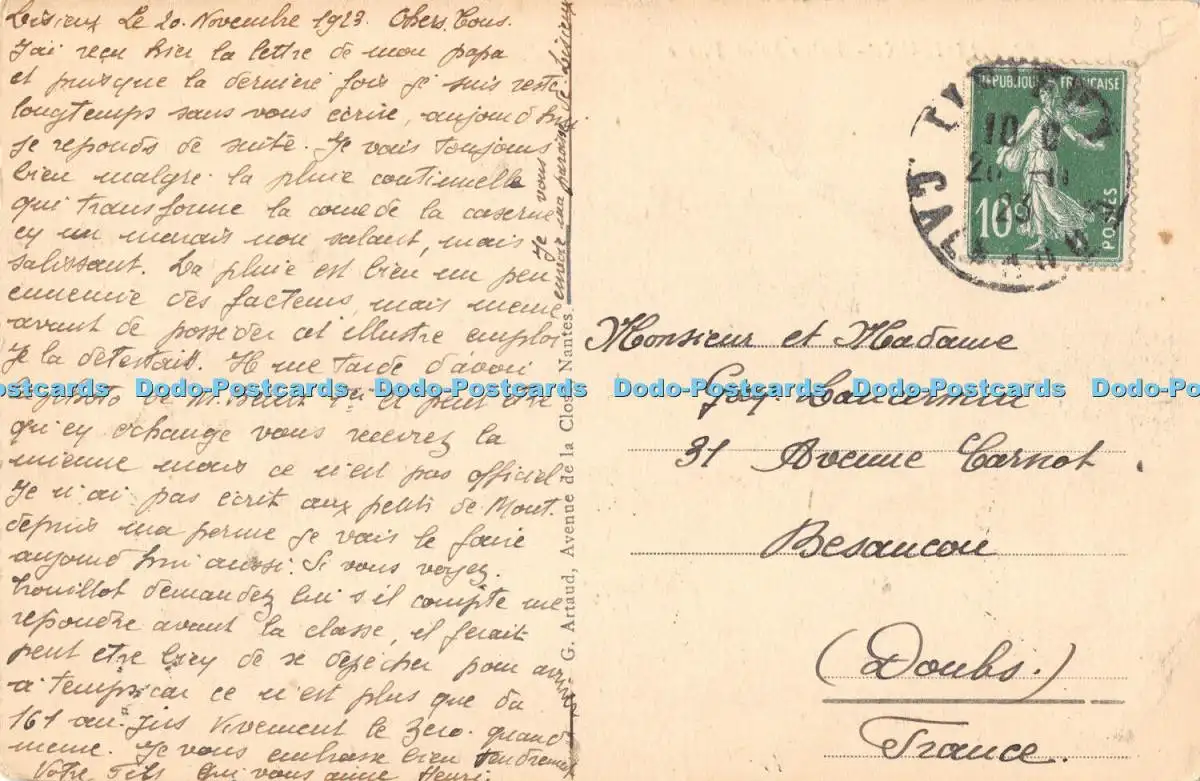 Lisieux Le 20. Novembre 1923. Chers Tous.
J'ai reçu hier la lettre de mon papa
et puisque la derniere fois je suis resté
longtemps sans vous écrire, aujourd'hui
je reponds de suite. Je vais toujours
bien malgre la pluie continuelle
qui transforme la cour de la caserne
en un marais non salant, mais
salissant. La pluie est bien un peu
ennemie des facteurs, mais meme
avant de posseder cet illustre emploi
je la detestais. Il me tarde d'avoir
la photo de
qu'en echange vous recevrez la
mienne mais ce n'est pas officiel
Je n'ai pas écrit aux petits de Mont.
depuis ma perme je vais le faire
aujourd'hui aussi. Si vous voyez
Trouillot demandez lui s'il compte me
repondre avant la classe, il ferait
peut etre bien de se depecher pour arriver
a temps car ce n'est plus que du
161 au jus Vivement le Zero. quand
meme. Je vous embrasse bien tendrement
Votre Fils qui vous aime Henri.
Je vous
envoie ma
de Lisieux
G. Artaud, Avenue de la Close, Nantes.
RÉPUBLIQUE FRANÇAISE
10c
POSTES
10
20 - 11
23
Monsieur et Madame
Guy
31 Avenue Carnot.
Besancon
(Doubs.)
France.
Dodo-Postcards Dodo-Postcards Dodo-Postcards Dodo-Postcards Dodo-Postcards